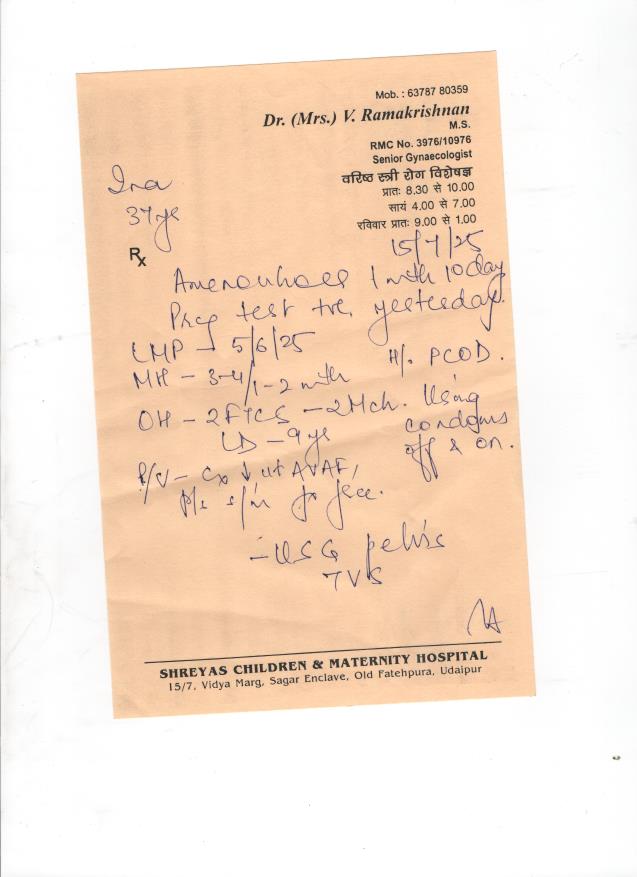 Mob. : 63787 80359
Dr. (Mrs.) V. Ramakrishnan
M.S.
RMC No. 3976/10976
Senior Gynaecologist
वरिष्ठ स्त्री रोग विशेषज्ञ
प्रातः 8.30 से 10.00
सायं 4.00 से 7.00
रविवार प्रातः 9.00 से 1.00
37 ys
15/7/25
Rx
Amenorrhoea 1 mth 10 day
Preg test +ve, yesterday.
LMP - 5/6/25
H/o PCOD.
MH - 3-4/1-2 mth
OH - 2 FTCS - 2 Mch. Using
LD - 9 ys condoms
off & on.
P/V - Cx ↓ ut AVAF,
- USG pelvis
TVS
SHREYAS CHILDREN & MATERNITY HOSPITAL
15/7, Vidya Marg, Sagar Enclave, Old Fatehpura, Udaipur